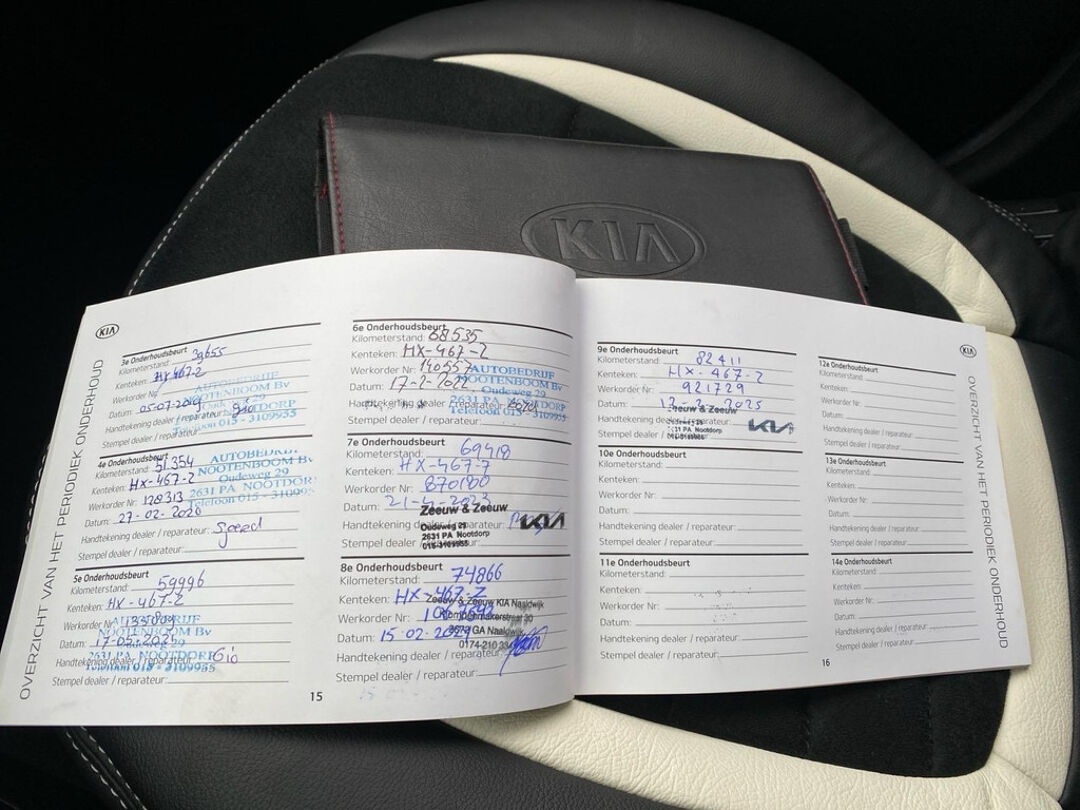 KIA
KIA
OVERZICHT VAN HET PERIODIEK ONDERHOUD
3e Onderhoudsbeurt
Kilometerstand: 39655
Kenteken: HX-467-Z
Werkorder Nr:
AUTOBEDRIJF
NOOTENBOOM Bv
Datum: 05-07-
Handtekening dealer / reparateur:
Telefoon 015 - 3109955
Stempel dealer / reparateur:
4e Onderhoudsbeurt
Kilometerstand: 51354
Kenteken: HX-467-Z
Werkorder Nr: 128313
Datum: 27-02-2020
AUTOBEDRIJF
NOOTENBOOM Bv
Oudeweg 29
2631 PA NOOTDORP
Telefoon 015 - 310995
Handtekening dealer / reparateur:
Stempel dealer / reparateur:
5e Onderhoudsbeurt
Kilometerstand: 59996
Kenteken: HX-467-Z
Werkorder Nr:
Datum: 17-05-
AUTOBEDRIJF
NOOTENBOOM Bv
Oudeweg 29
2631 PA NOOTDORP
Telefoon 015 - 3109955
Handtekening dealer / reparateur:
Stempel dealer / reparateur:
15
6e Onderhoudsbeurt
Kilometerstand: 68535
Kenteken: HX-467-Z
Werkorder Nr: 140557
Datum: 17-2-2022
AUTOBEDRIJF
NOOTENBOOM Bv
Oudeweg 29
2631 PA NOOTDORP
Telefoon 015 - 3109955
Handtekening dealer / reparateur:
Stempel dealer / reparateur:
7e Onderhoudsbeurt
Kilometerstand: 69418
Kenteken: HX-467-Z
Werkorder Nr: 870180
Datum: 21-4-2023
Zeeuw & Zeeuw
Handtekening dealer / reparateur:
KIA
Oudeweg 29
2631 PA Nootdorp
015-3109955
Stempel dealer / reparateur:
8e Onderhoudsbeurt
Kilometerstand: 74866
Kenteken: HX-467-Z
Zeeuw & Zeeuw KIA Naaldwijk
Werkorder Nr:
Datum: 15-02-
GA Naaldwijk
0174-210
Handtekening dealer / reparateur:
Stempel dealer / reparateur:
9e Onderhoudsbeurt
Kilometerstand: 82411
Kenteken: HX-467-Z
Werkorder Nr: 921729
Datum: 12-2-2025
Zeeuw & Zeeuw
Handtekening dealer / reparateur:
KIA
2631 PA Nootdorp
Stempel dealer / reparateur:
10e Onderhoudsbeurt
Kilometerstand:
Kenteken:
Werkorder Nr:
Datum:
Handtekening dealer / reparateur:
Stempel dealer / reparateur:
11e Onderhoudsbeurt
Kilometerstand:
Kenteken:
Werkorder Nr:
Datum:
Handtekening dealer / reparateur:
Stempel dealer / reparateur:
KIA
12e Onderhoudsbeurt
Kilometerstand:
Kenteken:
Werkorder Nr:
Datum:
Handtekening dealer / reparateur:
Stempel dealer / reparateur:
13e Onderhoudsbeurt
Kilometerstand:
Kenteken:
Werkorder Nr:
Datum:
Handtekening dealer / reparateur:
Stempel dealer / reparateur:
14e Onderhoudsbeurt
Kilometerstand:
Kenteken:
Werkorder Nr:
Datum:
Handtekening dealer / reparateur:
Stempel dealer / reparateur:
16
OVERZICHT VAN HET PERIODIEK ONDERHOUD